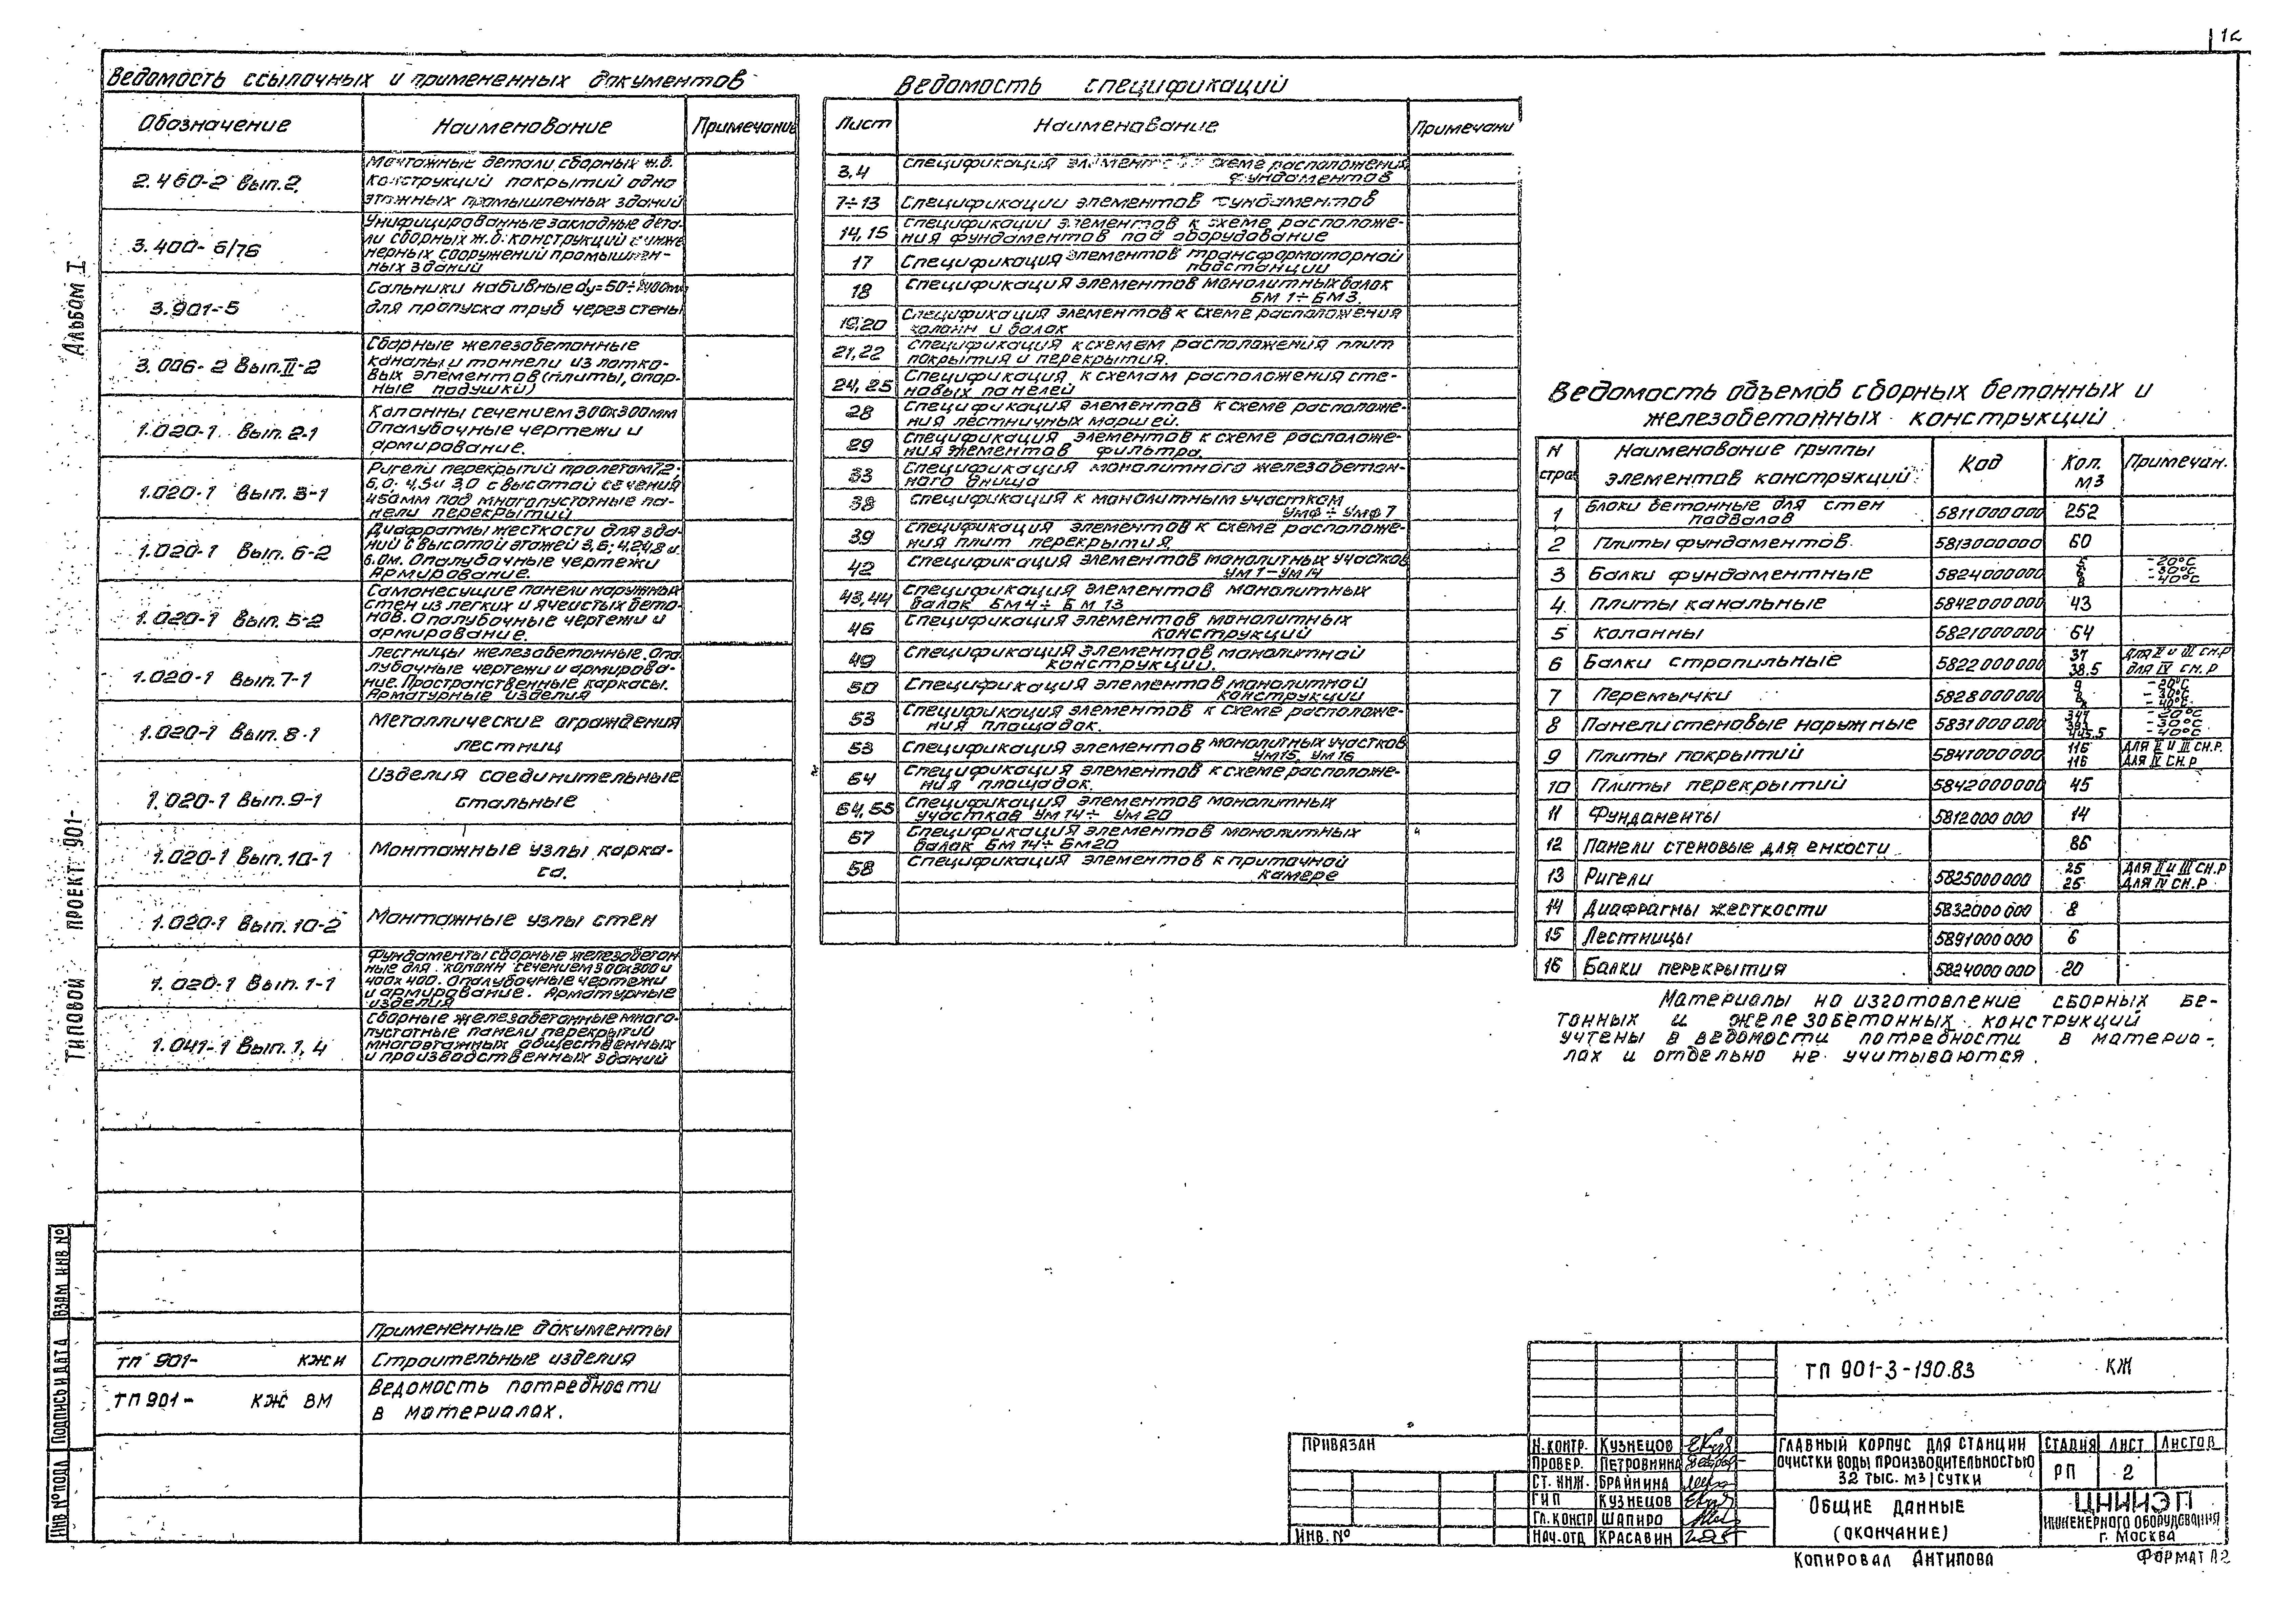 12
Ведомость ссылочных и примененных документов
Обозначение Наименование Примечание
2.460-2 Вып.2 Монтажные детали сборных ж.б.
конструкций покрытий одно
этажных промышленных зданий
3.400-6/76 Унифицированные закладные дета-
ли сборных ж.б. конструкций инже
нерных сооружений промышлен-
ных зданий
3.901-5 Сальники набивные dy=50÷
для пропуска труб через стены
3.006-2 Вып.II-2 Сборные железобетонные
каналы и тоннели из лотко-
вых элементов (плиты, опор-
ные подушки)
1.020-1 Вып. 2-1 Колонны сечением 300х300мм
Опалубочные чертежи и
армирование.
1.020-1 Вып. 3-1 Ригели перекрытий пролетом 7.2
6,0; 4,5 и 3,0 с высотой сечения
450мм под многопустотные па-
нели перекрытий
1.020-1 Вып. 6-2 Диафрагмы жесткости для зда-
ний с высотой этажей 3,6; 4,2 и
6.0м. Опалубочные чертежи
Армирование.
1.020-1 Вып. 5-2 Самонесущие панели наружных
стен из легких и ячеистых бето-
нов. Опалубочные чертежи и
армирование.
1.020-1 Вып. 7-1 Лестницы железобетонные. Опа
лубочные чертежи и армирова-
ние. Пространственные каркасы.
Арматурные изделия
1.020-1 Вып. 8-1 Металлические ограждения
лестниц
1.020-1 Вып. 9-1 Изделия соединительные
стальные
1.020-1 Вып. 10-1 Монтажные узлы карка-
са.
1.020-1 Вып. 10-2 Монтажные узлы стен
1.020-1 Вып. 1-1 Фундаменты сборные железобетон
ные для колонн сечением 300х300 и
400х400. Опалубочные чертежи
и армирование. Арматурные
изделия
1.041-1 Вып. 1, 4 Сборные железобетонные много-
пустотные панели перекрытий
многоэтажных общественных
и производственных зданий
Примененные документы
ТП 901- КЖИ Строительные изделия
ТП 901- КЖ ВМ Ведомость потребности
в материалах.
Ведомость спецификаций
Лист Наименование Примечани
3.4 Спецификация элементов к схеме расположения
фундаментов
7÷13 Спецификации элементов фундаментов
14,15 Спецификации элементов к схеме расположе-
ния фундаментов под оборудование
17 Спецификация элементов трансформаторной
подстанции
18 Спецификация элементов монолитных балок
БМ 1÷БМ3.
19,20 Спецификация элементов к схеме расположения
колонн и балок
21,22 Спецификация к схемам расположения плит
покрытия и перекрытия.
24,25 Спецификация к схемам расположения сте-
новых панелей
28 Спецификация элементов к схеме расположе-
ния лестничных маршей.
29 Спецификация элементов к схеме расположе-
ния элементов фильтра.
33 Спецификация монолитного железобетон-
ного днища
38 Спецификация к монолитным участкам
÷ УМф 7
39 Спецификация элементов к схеме расположе-
ния плит перекрытия.
42 Спецификация элементов монолитных участков
УМ 1-УМ 14
43,44 Спецификация элементов монолитных
балок БМ4÷БМ 13
46 Спецификация элементов монолитных
конструкций
49 Спецификация элементов монолитной
конструкции.
50 Спецификация элементов монолитной
конструкции
53 Спецификация элементов к схеме расположе-
ния площадок.
53 Спецификация элементов монолитных участков
УМ15, УМ16
54 Спецификация элементов к схеме расположе-
ния площадок.
54,55 Спецификация элементов монолитных
участков УМ 14÷ УМ 20
57 Спецификация элементов монолитных
балок БМ 14÷ БМ20
58 Спецификация элементов к приточной
камере
Ведомость объемов сборных бетонных и
железобетонных конструкций
N стро Наименование группы элементов конструкций Код Кол. м3 Примечан.
1 Блоки бетонные для стен подвалов 5811000000 252
2 Плиты фундаментов 5813000000 60
3 Балки фундаментные 5824000000 -20°С -30°С -40°С
4 Плиты канальные 5842000000 43
5 Колонны 5821000000 64
6 Балки стропильные 5822000000 37 для II и III сн.р
38.5 для IV сн.р
7 Перемычки 5828000000 9 -20°С -30°С -40°С
8 Панели стеновые наружные 5831000000 -20°С -30°С
445.5 -40°С
9 Плиты покрытий 5841000000 116 для II и III сн.р.
116 для IV сн.р
10 Плиты перекрытий 5842000000 45
11 Фундаменты 5812000000 14
12 Панели стеновые для емкости 86
13 Ригели 5825000000 25 для II и III сн.р
25 для IV сн.р.
14 Диафрагмы жесткости 5832000000 8
15 Лестницы 5891000000 6
16 Балки перекрытия 5824000000 20
Материалы на изготовление сборных бе-
тонных и железобетонных конструкций
учтены в ведомости потребности в материа-
лах и отдельно не учитываются.
Альбом I
Типовой проект 901-
Взам инв №
Подпись и дата
Инв № подл
Привязан
Инв. №
ТП 901-3-190.83 КЖ
Н.контр. Кузнецов
Провер. Петровнина
Ст. инж. Брайнина
ГИП Кузнецов
Гл.констр Шапиро
Нач.отд Красавин
Главный корпус для станции
очистки воды производительностью
32 тыс. м3/сутки
Стадия Лист Листов
РП 2
Общие данные
(окончание)
ЦНИИЭП
инженерного оборудования
г. Москва
Копировал Антипова Формат А2